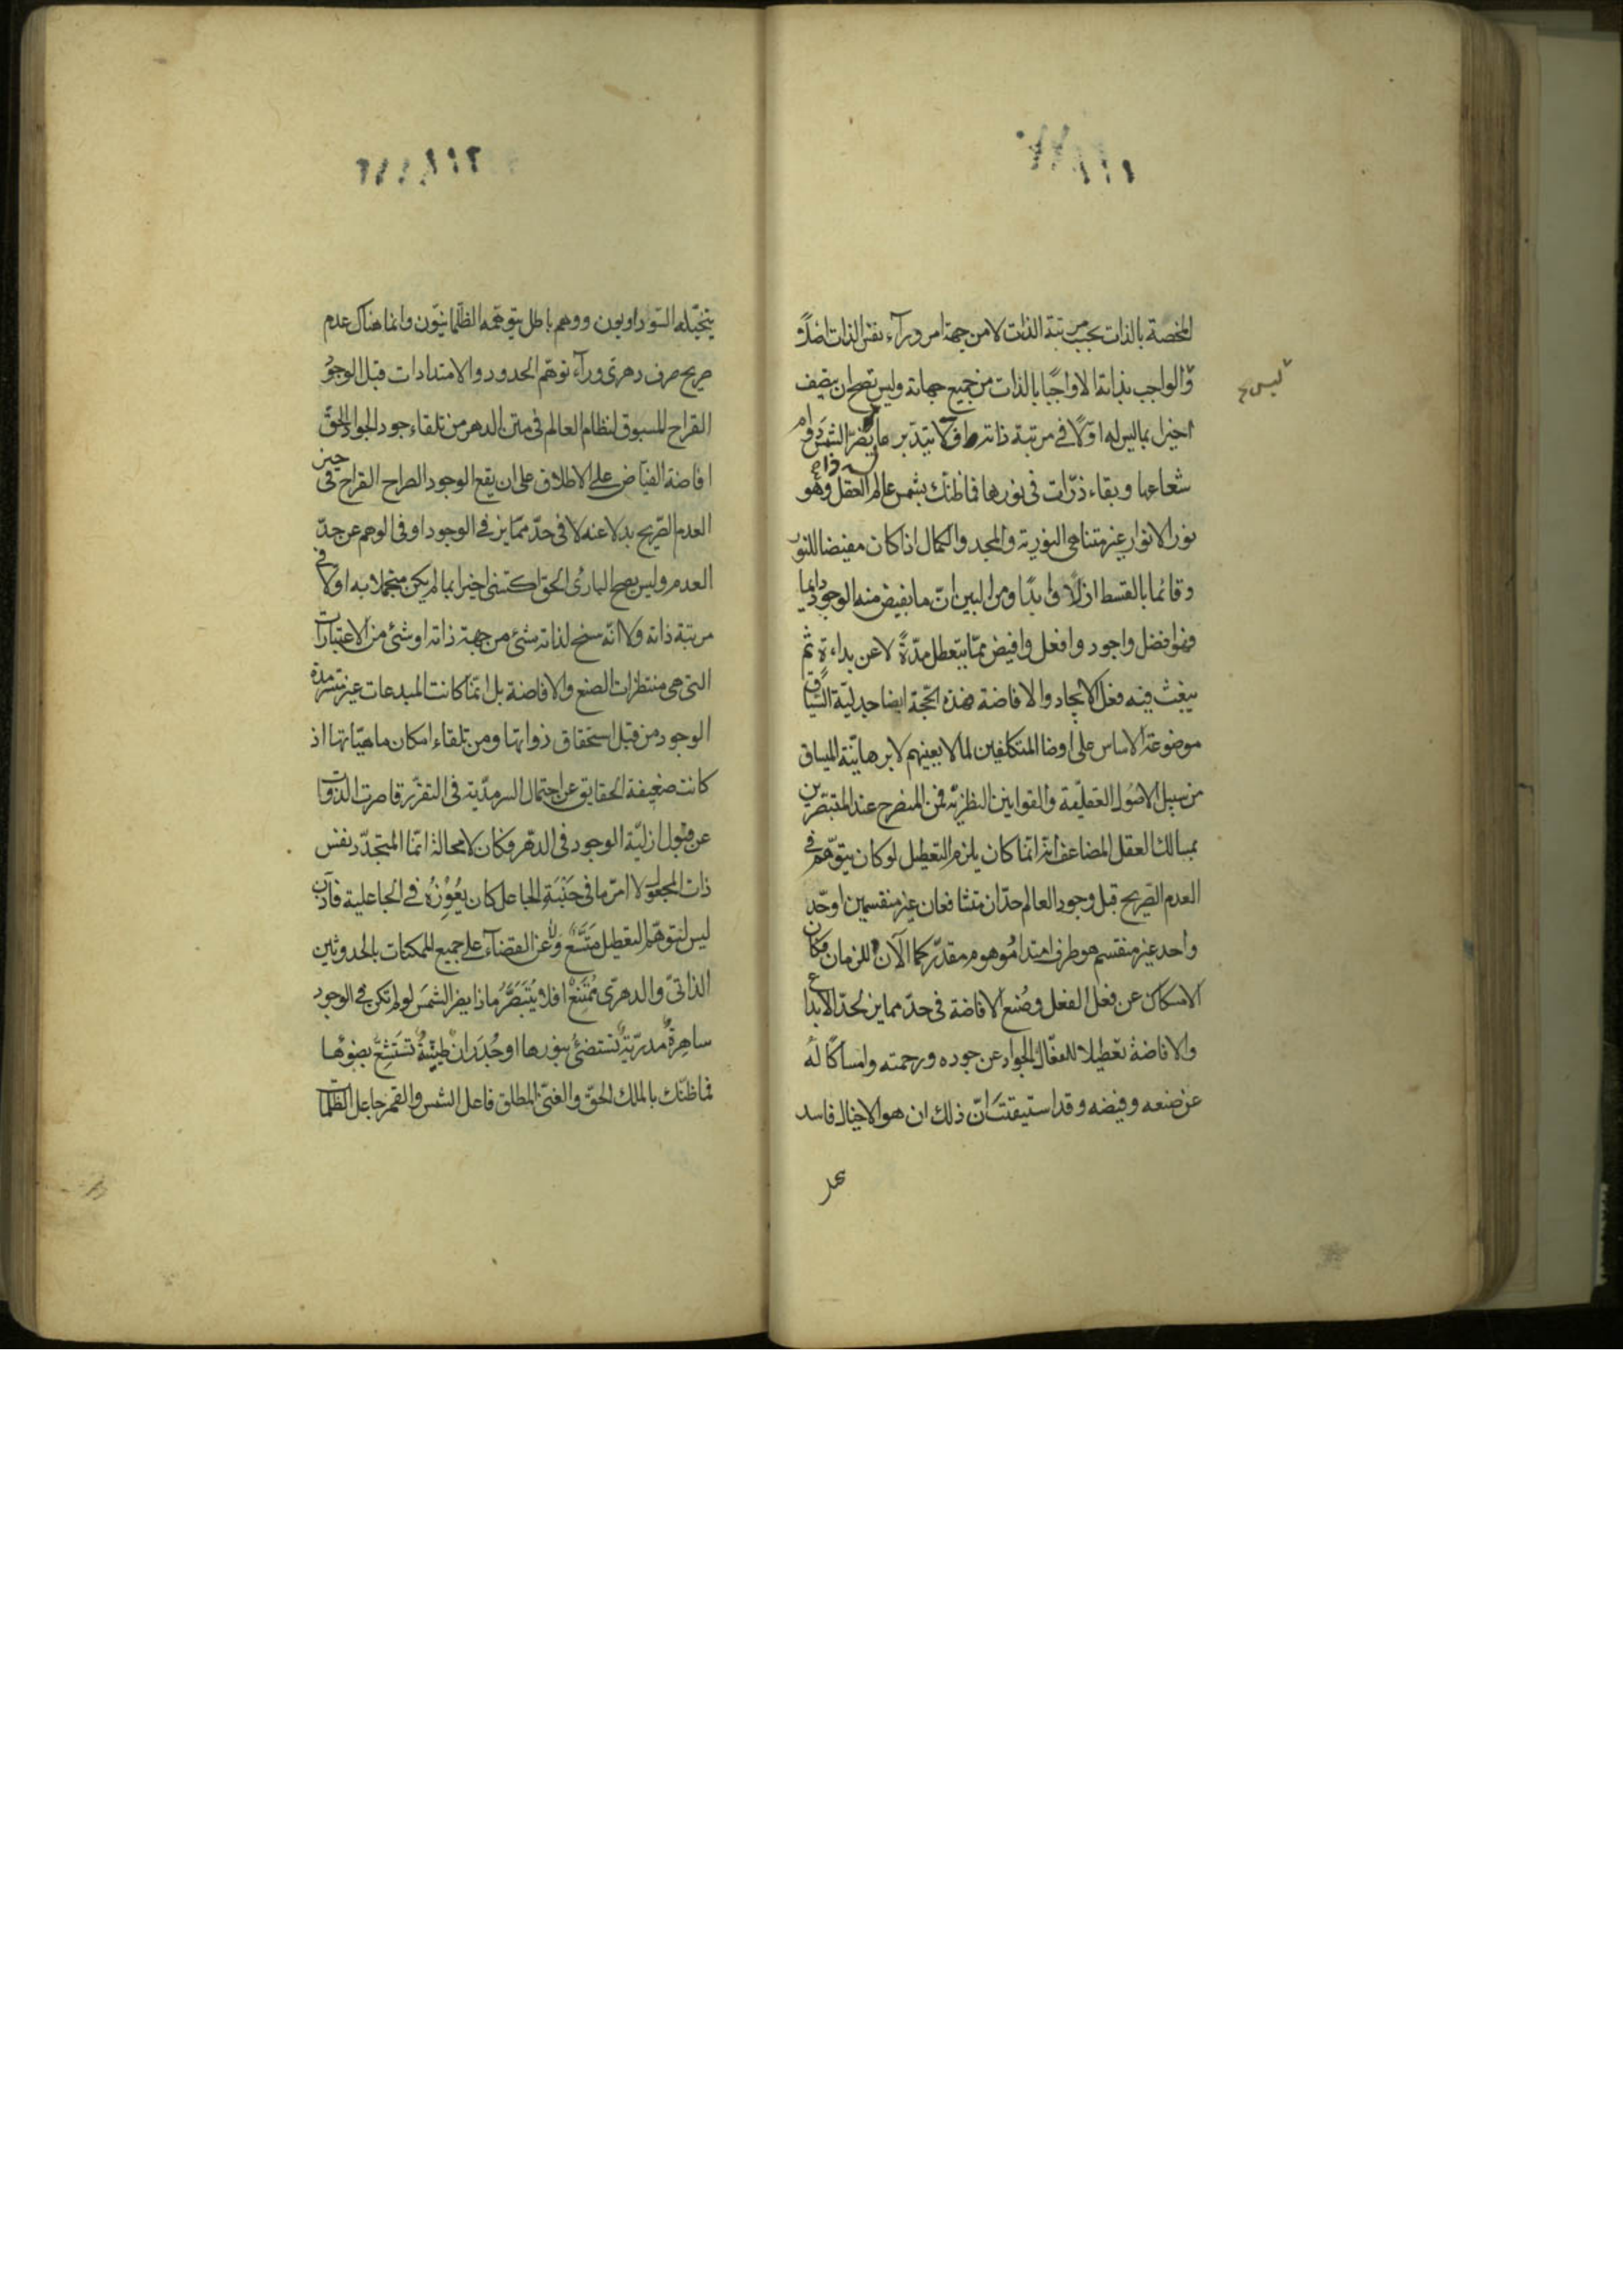 المخصة بالذات بحسب مرتبة الذات لا من جهة امر ورآء نفس الذات
والواجب بذاته الا واجبًا بالذات من جميع جهاته وليس يصح ان يتصف
اخيرا بما ليس له اوّلا فى مرتبة ذاته
شعاعها وبقاء ذرّات فى نورها فما ظنّك بشمس عالم العقل وهو
نور الانوار غير متناهى النورية والمجد والكمال اذا كان مفيضا للنور
وقائما بالقسط ازلًا وابدًا ومن البين انّ ما يفيض منه الوجود دايما
فهو افضل واجود وافعل وافيض ممّا يتعطل مدّةً لا عن بداءة ثم
ينبعث فيه فعل الايجاد والافاضة فهذه الحجّة ايضا جدليّة السّياق
موضوعة الاساس على اوضا المتكلفين لما لا يعينهم لا برهانيّة المساق
من سبيل الاصول العقليّة والقوانين النظريّة فمن المنصرح عند المتبصّرين
بمسالك العقل المضاعف انّه انّما كان يلزم التعطيل لو كان يتوهّم فى
العدم الصّريح قبل وجود العالم حدّان متشافعان غير منقسمين او حدّ
واحد غير منقسم هو طرف امتداد موهوم مقدّر كما الآن للزمان فكان
الامساك عن فعل الفعل وصُنع الافاضة فى حدّ ممايز لحدّ الابداع
والافاضة تعطيلا للفعّال الجواد عن جوده ورحمته وامساكًا له
عن صنعه وفيضه وقد استيقنتَ انّ ذلك ان هو الا خيال فاسد
يتخيّله السّوداويون ووهم باطل يتوهّمه الظلمانيّون وانما هناك عدم
صريح صرف دهرى ورآء توهّم الحدود والامتدادات قبل الوجود
القراح المسبوق لنظام العالم فى متن الدهر من تلقاء جود الجواد الحقّ
افاضة الفيّاض على الاطلاق على ان يقع الوجود الصراح القراح فى حيز
العدم الصّريح بدلا عنه لا فى حدّ ممّايز فى الوجود او فى الوهم عن حدّ
العدم وليس يصح البارئ الحق اكتسى اخيرا بما لم يكن متجملا به اوّلا فى
مرتبة ذاته ولا انّه سنح لذاته شئ من جهة ذاته او شئ من الاعتبارات
التى هى منتظرات الصنع والافاضة بل انّما كانت المبدعات غير متسرمدة
الوجود من قبل استحقاق ذواتها ومن تلقاء امكان ماهيّاتها اذ
كانت ضعيفة الحقايق عن احتمال السرمديّة فى التقرّر قاصرت الذوات
عن قبول ازليّة الوجود فى الدّهر فكان لا محالة انّما المتجدّد نفس
ذات المجعول لا امر ما فى جَنْبَةِ الجاعل كان يُعْوِزُه فى الجاعلية فاذن
ليس لتوهّم التعطيل مُتَّسَعٌ ولا عن القضآء على جميع الممكنات بالحدوثين
الذاتىّ والدهرىّ مُمْتَنَعٌ افلا يُتَبَصَّرُ ماذا يضر الشمسَ لو لم تكن فى الوجود
ساهِرةٌ مدريّةٌ تستضئ بنورها او جُدرانٌ طينيّةٌ تَسْتَشِعُّ بضوئها
فما ظنّك بالملك الحقّ والغنىّ المطلق فاعل الشمس والقمر جاعل الظلمات